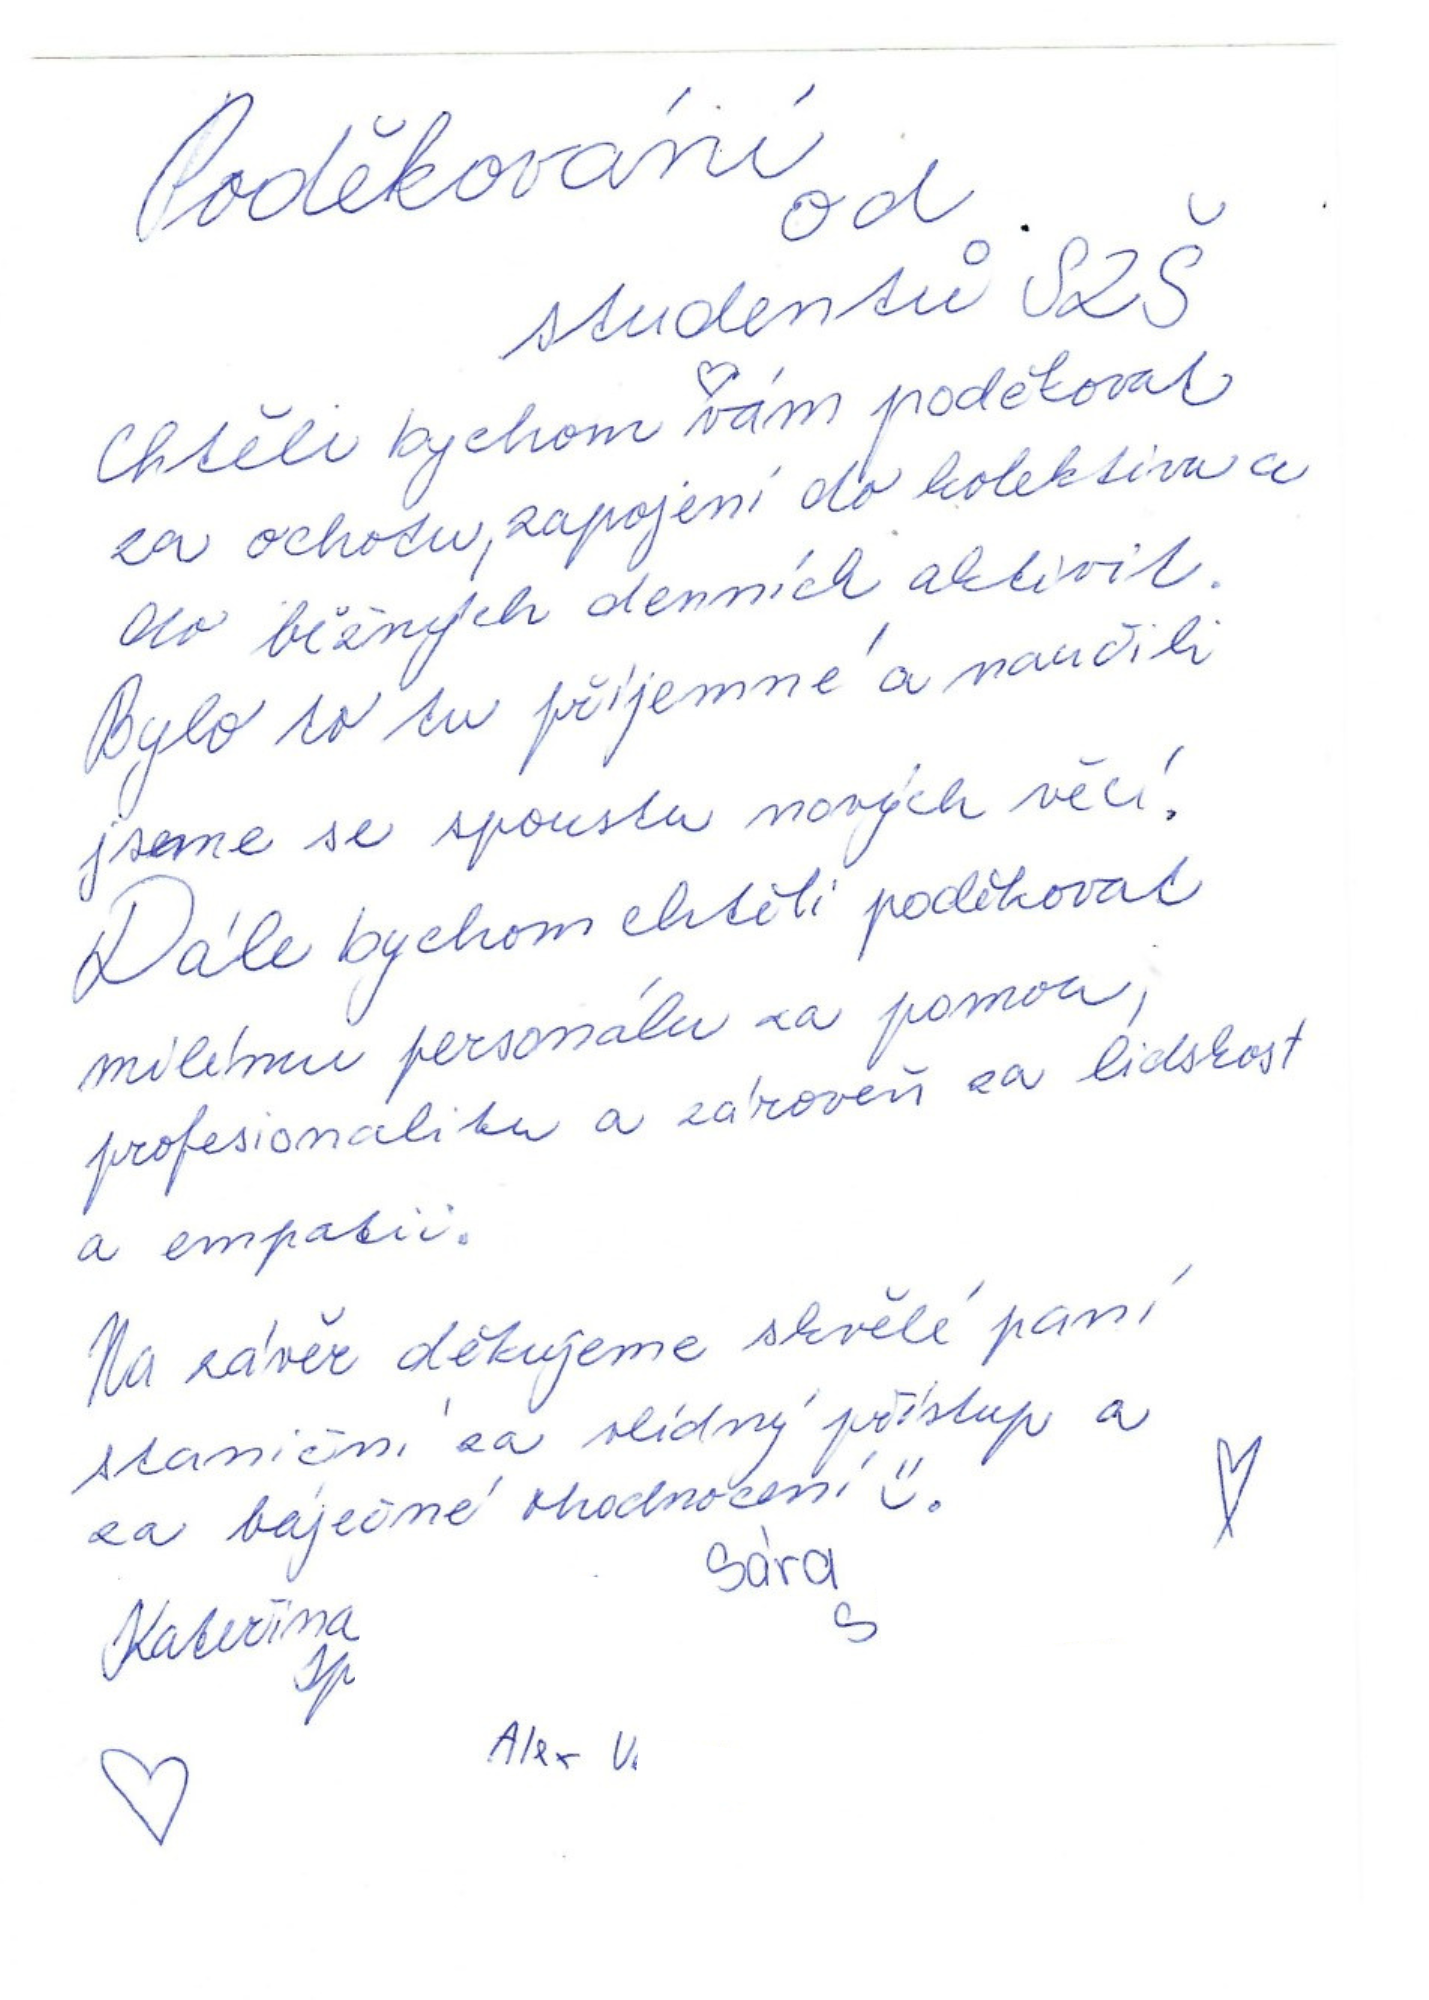 Poděkování
od
studentů SZŠ
Chtěli bychom vám poděkovat
za ochotu, zapojení do kolektivu a
do běžných denních aktivit.
Bylo to tu příjemné a naučili
jsme se spoustu nových věcí.
Dále bychom chtěli poděkovat
milému personálu za pomoc,
profesionalitu a zároveň za lidskost
a empatii.
Na závěr děkujeme skvělé paní
staniční za vlídný přístup a
za báječné ohodnocení ü.
Sára
S
Kateřina
Sp
Alex V.